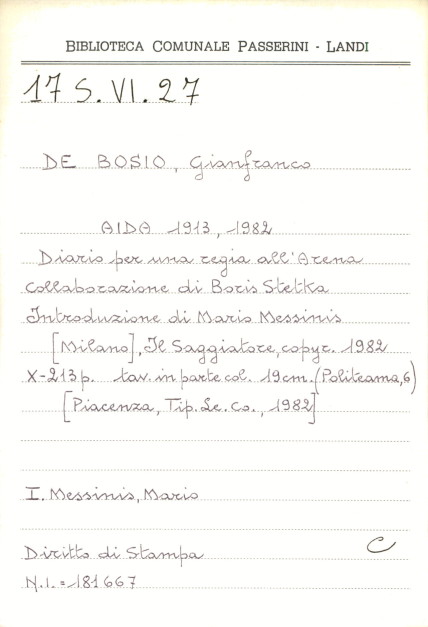 BIBLIOTECA COMUNALE PASSERINI - LANDI
17 S. VI. 27
DE BOSIO, Gianfranco
AIDA 1913, 1982
Diario per una regia all'Arena
Collaborazione di Boris Stetka
Introduzione di Mario Messinis
[Milano], Il Saggiatore, copyr. 1982
X-213 p. tav. in parte col. 19 cm. (Politeama, 6)
[Piacenza, Tip. Le. Co., 1982]
I. Messinis, Mario
C
Diritto di Stampa
N.I. = 181667